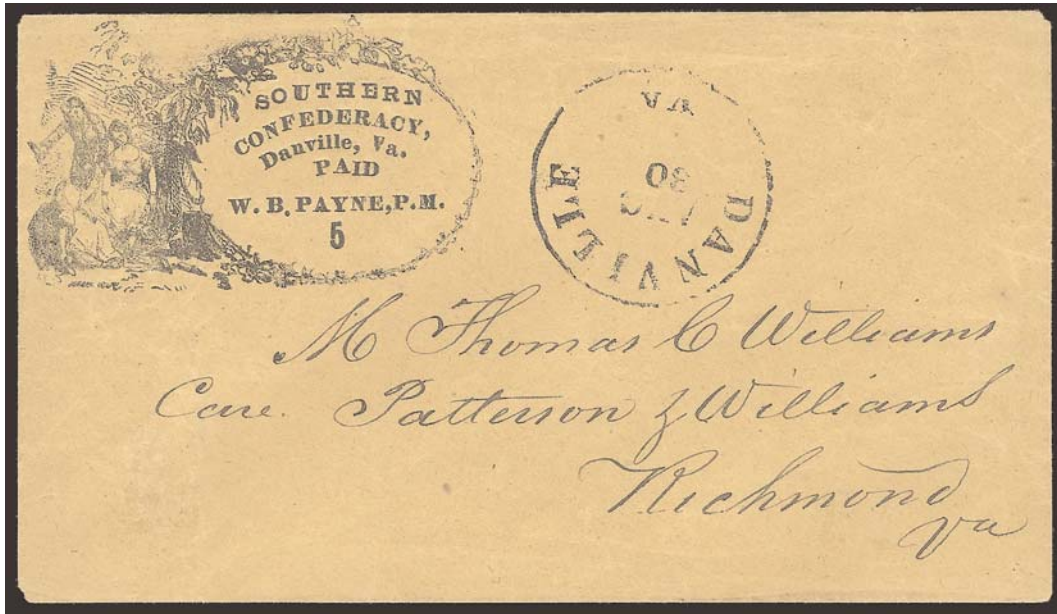 SOUTHERN
CONFEDERACY,
Danville, Va.
PAID
W. B. PAYNE, P.M.
5
DANVILLE
VA
30
M Thomas C Williams
Care. Patterson & Williams
Richmond
Va